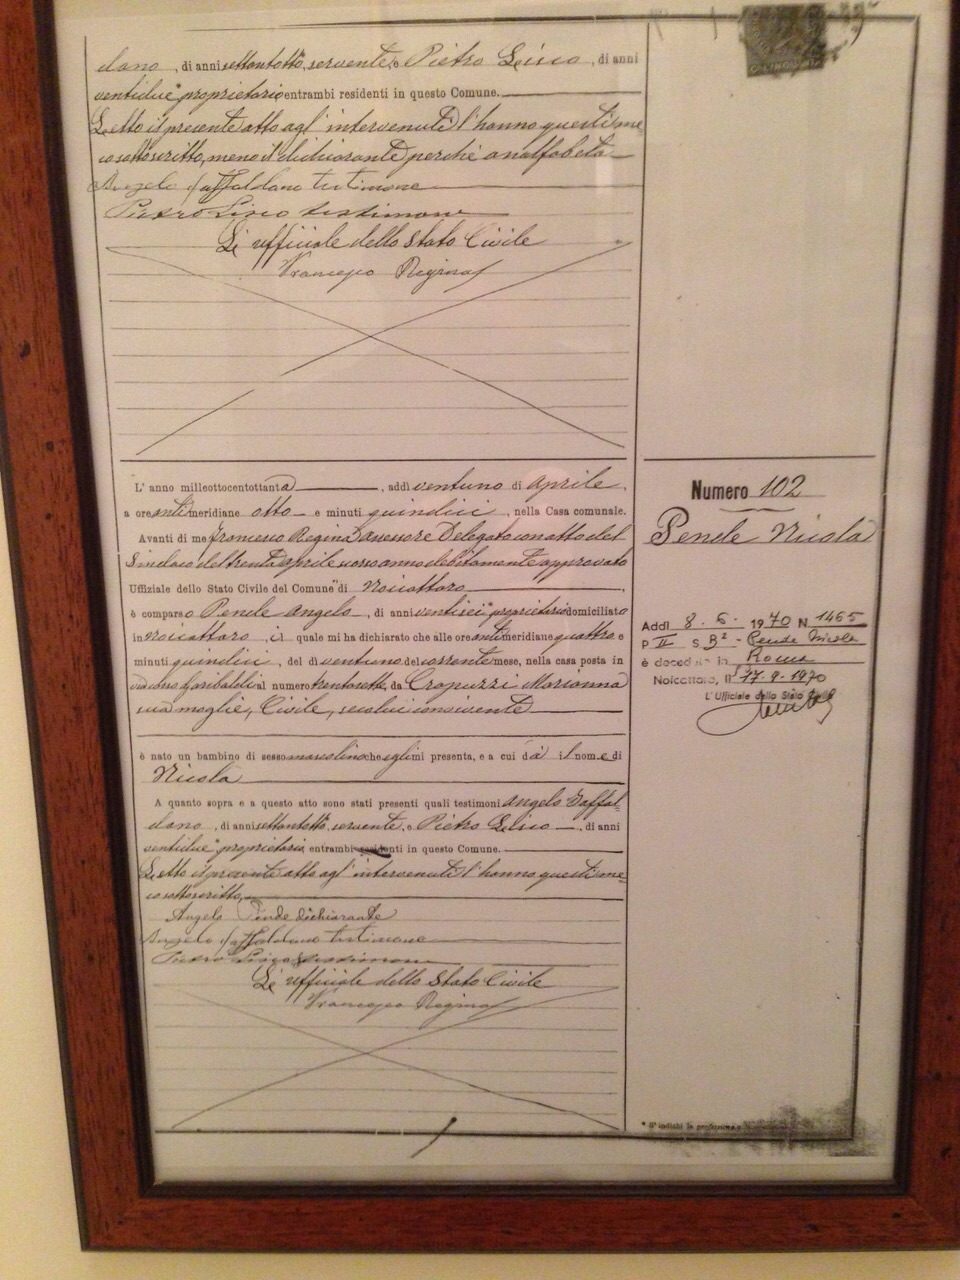 dano, di anni settantotto, servente, e Pietro Lisco, di anni
ventidue proprietario entrambi residenti in questo Comune.
Letto il presente atto agl'intervenuti l'hanno questi me
co sottoscritto, meno il dichiarante perchè analfabeta
Angelo Taffaldano testimone
Pietro Lisco testimone
L'ufficiale dello Stato Civile
Francesco Regina
L'anno milleottocentottanta, addì ventuno di Aprile,
a ore antimeridiane otto e minuti quindici, nella Casa comunale.
Avanti di me Francesco Regina assessore Delegato con atto del
Sindaco del trenta Aprile scorso anno debitamente approvato
Uffiziale dello Stato Civile del Comune di Noicattaro
è comparso Pende Angelo, di anni ventisei proprietario domiciliato
in Noicattaro, il quale mi ha dichiarato che alle ore antimeridiane quattro e
minuti quindici, del dì ventuno del corrente mese, nella casa posta in
via corso Garibaldi al numero trentasette, da Crapuzzi Marianna
sua moglie, Civile, secolui convivente
è nato un bambino di sesso mascolino che egli mi presenta, e a cui dà il nome di
Nicola
A quanto sopra e a questo atto sono stati presenti quali testimoni Angelo Taffal
dano, di anni settantotto, servente, e Pietro Lisco, di anni
ventidue, proprietario, entrambi residenti in questo Comune.
Letto il presente atto agl'intervenuti l'hanno questi me
co sottoscritto,
Angelo Pende dichiarante
Angelo Taffaldano testimone
Pietro Lisco testimone
L'ufficiale dello Stato Civile
Francesco Regina
Numero 102
Pende Nicola
Addì 8.6.1970 N. 1465
P II S B² - Pende Nicola
è deceduto in Roma
Noicattaro, lì 17.9.1970
L'Ufficiale dello Stato Civile
* S'indichi la professione o